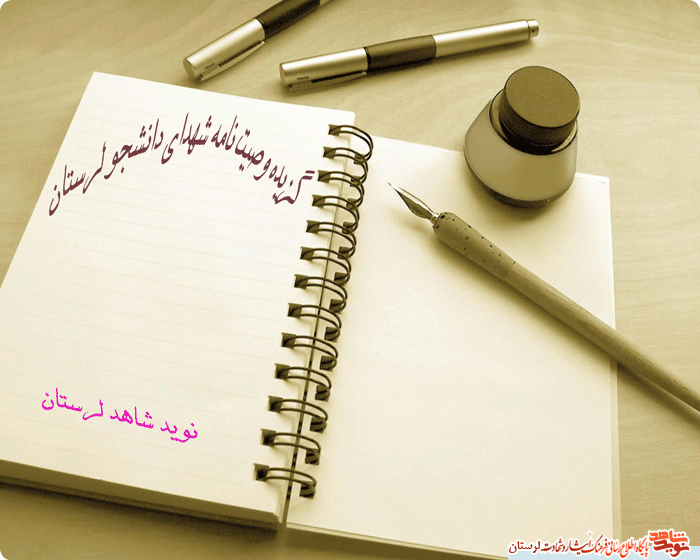 گزیده وصیت نامه شهدای دانشجو لرستان
نوید شاهد لرستان
نوید شاهد پایگاه اطلاع رسانی فرهنگ ایثار و شهادت لرستان